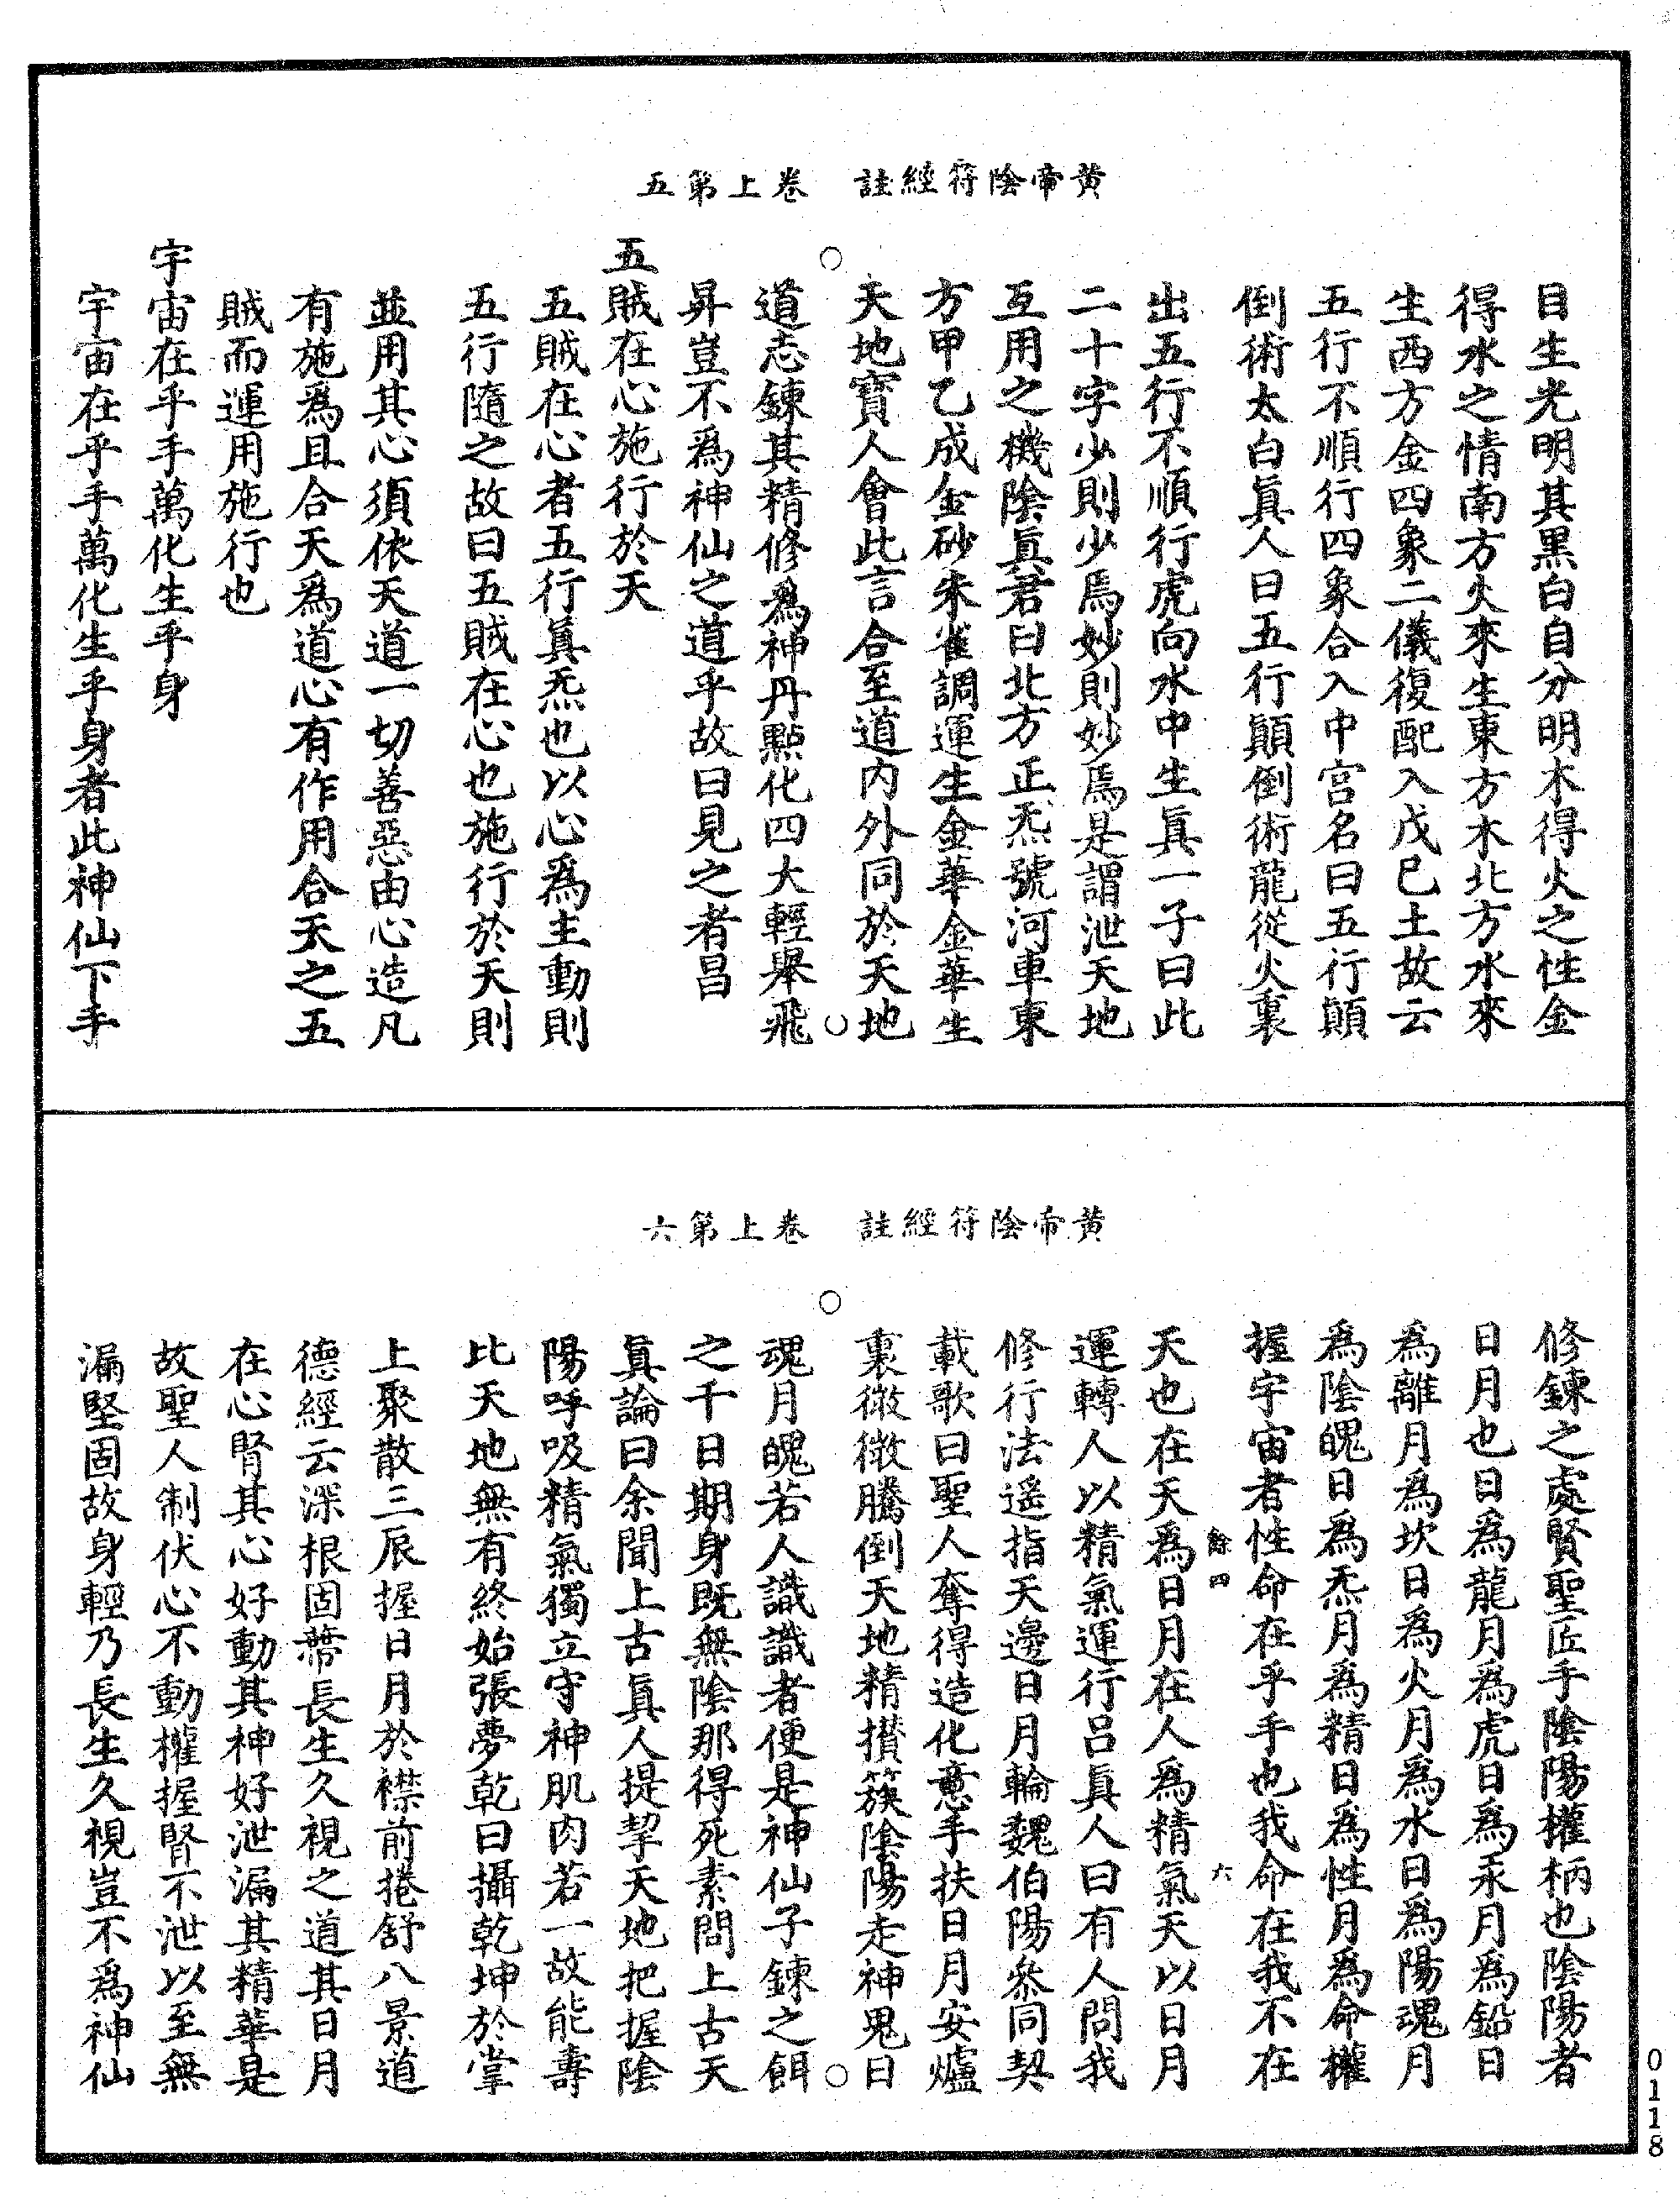 黄帝陰符經註　卷上第五
目生光明其黒白自分明木得火之性金
得水之情南方火來生東方木北方水來
生西方金四象二儀復配入戊巳土故云
五行不順行四象合入中宫名曰五行顛
倒術太白眞人曰五行顛倒術龍從火裏
出五行不順行虎向水中生眞一子曰此
二十字少則少焉妙則妙焉是謂泄天地
互用之機陰眞君曰北方正炁號河車東
方甲乙成金砂朱雀調運生金華金華生
天地寳人會此言合至道内外同於天地
道志鍊其精修爲神丹點化四大輕舉飛
昇豈不爲神仙之道乎故曰見之者昌
五賊在心施行於天
五賊在心者五行眞炁也以心爲主動則
五行隨之故曰五賊在心也施行於天則
並用其心須依天道一切善惡由心造凡
有施爲且合天爲道心有作用合天之五
賊而運用施行也
宇宙在乎手萬化生乎身
宇宙在乎手萬化生乎身者此神仙下手
黄帝陰符經註　卷上第六
修鍊之處賢聖匠手陰陽權柄也陰陽者
日月也日爲龍月爲虎日爲汞月爲鉛日
爲離月爲坎日爲火月爲水日爲陽魂月
爲陰魄日爲炁月爲精日爲性月爲命權
握宇宙者性命在乎手也我命在我不在
餘四　六
天也在天爲日月在人爲精氣天以日月
運轉人以精氣運行吕眞人曰有人問我
修行法遥指天邊日月輪魏伯陽叅同契
載歌曰聖人奪得造化意手扶日月安爐
裏微微騰倒天地精攅簇陰陽走神鬼日
魂月魄若人識識者便是神仙子鍊之餌
之千日期身既無陰那得死素問上古天
眞論曰余聞上古眞人提挈天地把握陰
陽呼吸精氣獨立守神肌肉若一故能壽
比天地無有終始張夢乾曰攝乾坤於掌
上聚散三辰握日月於襟前捲舒八景道
德經云深根固蔕長生久視之道其日月
在心腎其心好動其神好泄漏其精華是
故聖人制伏心不動權握腎不泄以至無
漏堅固故身輕乃長生久視豈不爲神仙
0118